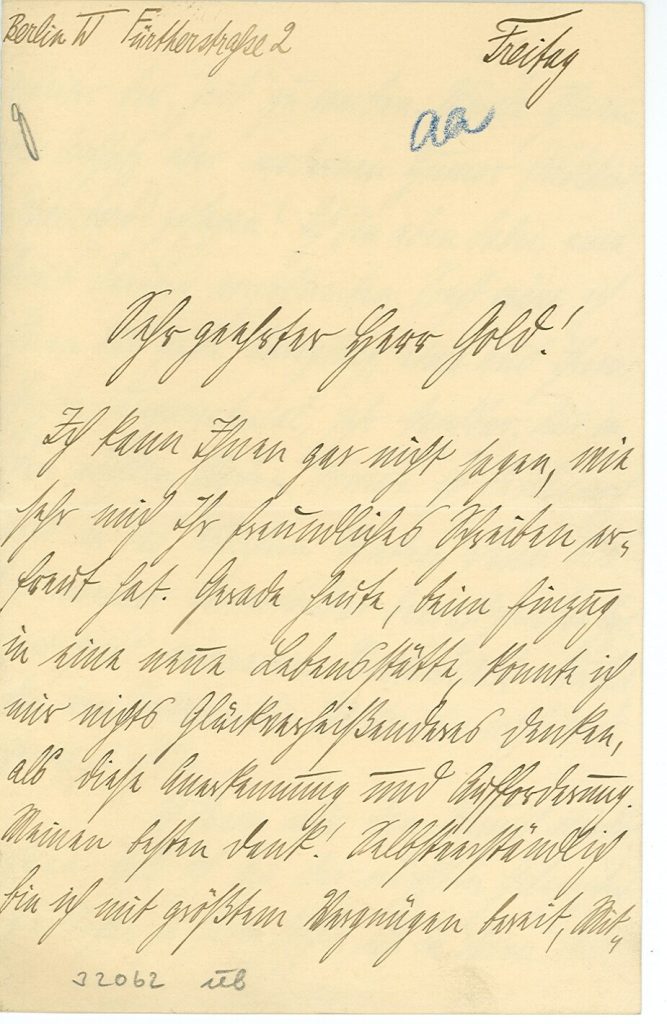 Berlin W Fürtherstraße 2
Freitag
aa
Sehr geehrter Herr Gold!
Ich kann Ihnen gar nicht sagen, wie
sehr mich Ihr freundliches Schreiben er-
freut hat. Gerade heute, beim Einzug
in eine neue Lebensstätte, konnte ich
mir nichts Glückverheißenderes denken,
als diese Anerkennung und Aufforderung.
Meinen besten Dank! Selbstverständlich
bin ich mit größtem Vergnügen bereit, Mit-
32062